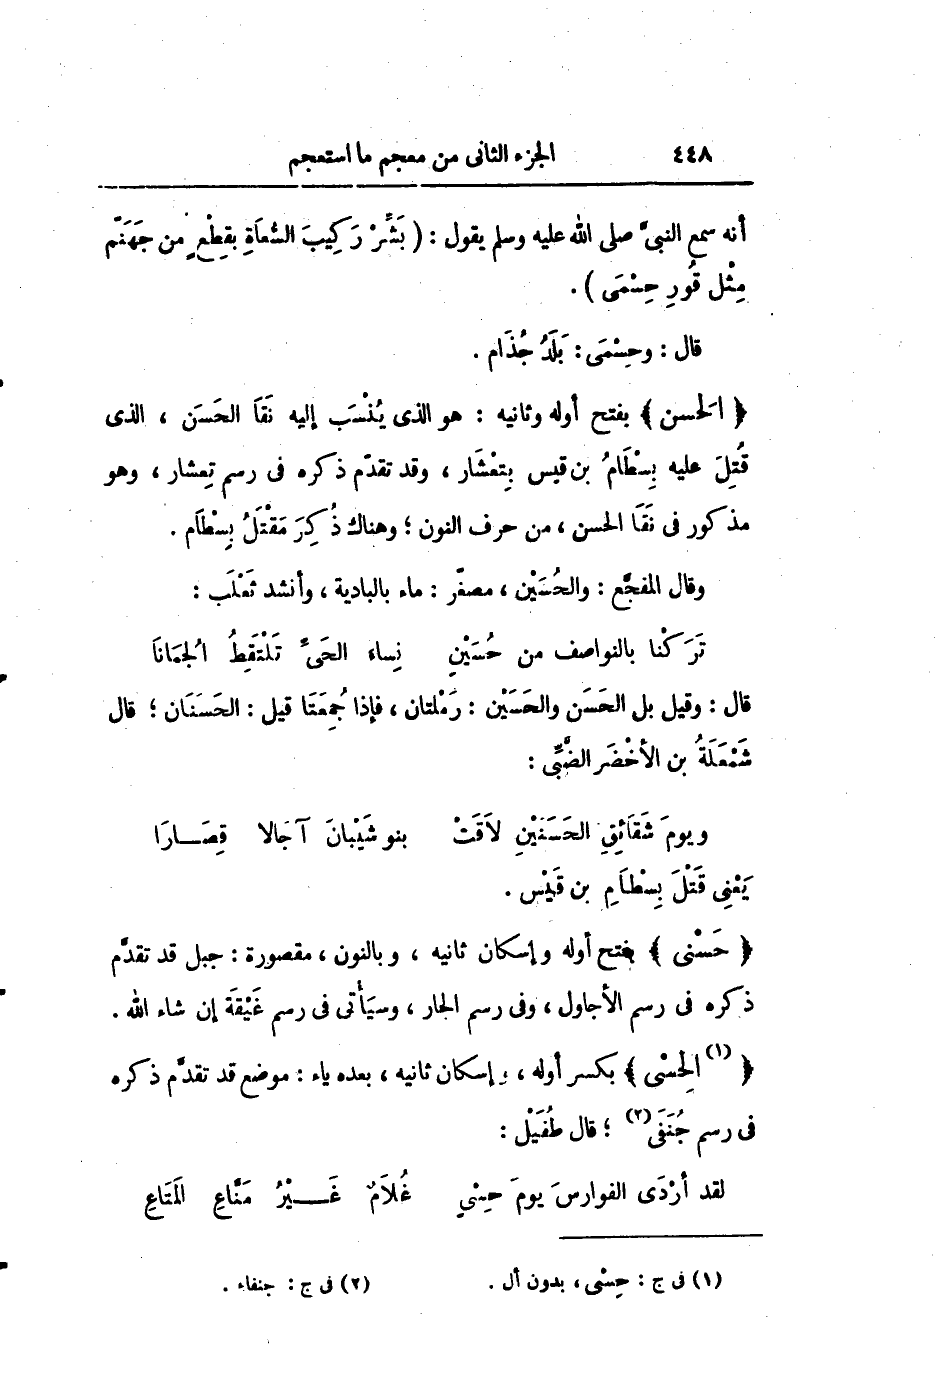 ٤٤٨ الجزء الثانى من معجم ما استعجم
أنه سمع النبىَّ صلى الله عليه وسلم يقول : ( بَشِّرْ رَكِيبَ السُّعاَةِ بقِطْعٍ من جَهَنَّم
مِثْل قُورِ حِسْمَى ) .
قال : وحِسْمَى : بَلَدُ جُذَام .
﴿ الحَسن ﴾ بفتح أوله وثانيه : هو الذى يُنْسَب إليه نَقاَ الحَسَن ، الذى
قُتِلَ عليه بِسْطَامُ بن قيس بِتِعْشَار ، وقد تقدّم ذكره فى رسم تِعشار ، وهو
مذكور فى نَقَا الحسن ، من حرف النون ؛ وهناك ذُكِرَ مَقْتَلُ بِسْطاَم .
وقال المفجَّع : والحُسَيْن ، مصغّر : ماء بالبادية ، وأنشد ثَعْلَب :
تَرَكْنا بالنواصف من حُسَيْنٍ نِساء الحَىِّ تَلْتَقِطُ الجُمَاناَ
قال : وقيل بل الحَسَن والحَسَيْن : رَمْلتان ، فإذا جُمِعَتَا قيل : الحَسَنَان ؛ قال
شَمْعَلَةُ بن الأخْضَر الضَّبِّى :
ويومَ شَقاَئِقِ الحَسَنَيْنِ لاَقَتْ بنو شَيْبانَ آجَالا قِصَــارَا
يَعْنِى قَتْلَ بِسْطاَمِ بن قَيْس .
﴿ حَسْنى ﴾ بفتح أوله وإسكان ثانيه ، وبالنون ، مقصورة : جبل قد تقدَّم
ذكره فى رسم الأجاول ، وفى رسم الجار ، وسيَأْتى فى رسم غَيْقَة إن شاء الله .
﴿ (١) الحِسْى ﴾ بكسر أوله ، وإسكان ثانيه ، بعده ياء : موضع قد تقدَّم ذكره
فى رسم جُنَفَى (٢) ؛ قال طُفَيْل :
لقد أرْدَى الفوارسَ يومَ حِسْىٍ غُلاَمٌ غَـــيْرُ مَنَّاعِ المَتَاعِ
(١) فى ج : حِسْى ، بدون أل . (٢) فى ج : جنفاء .